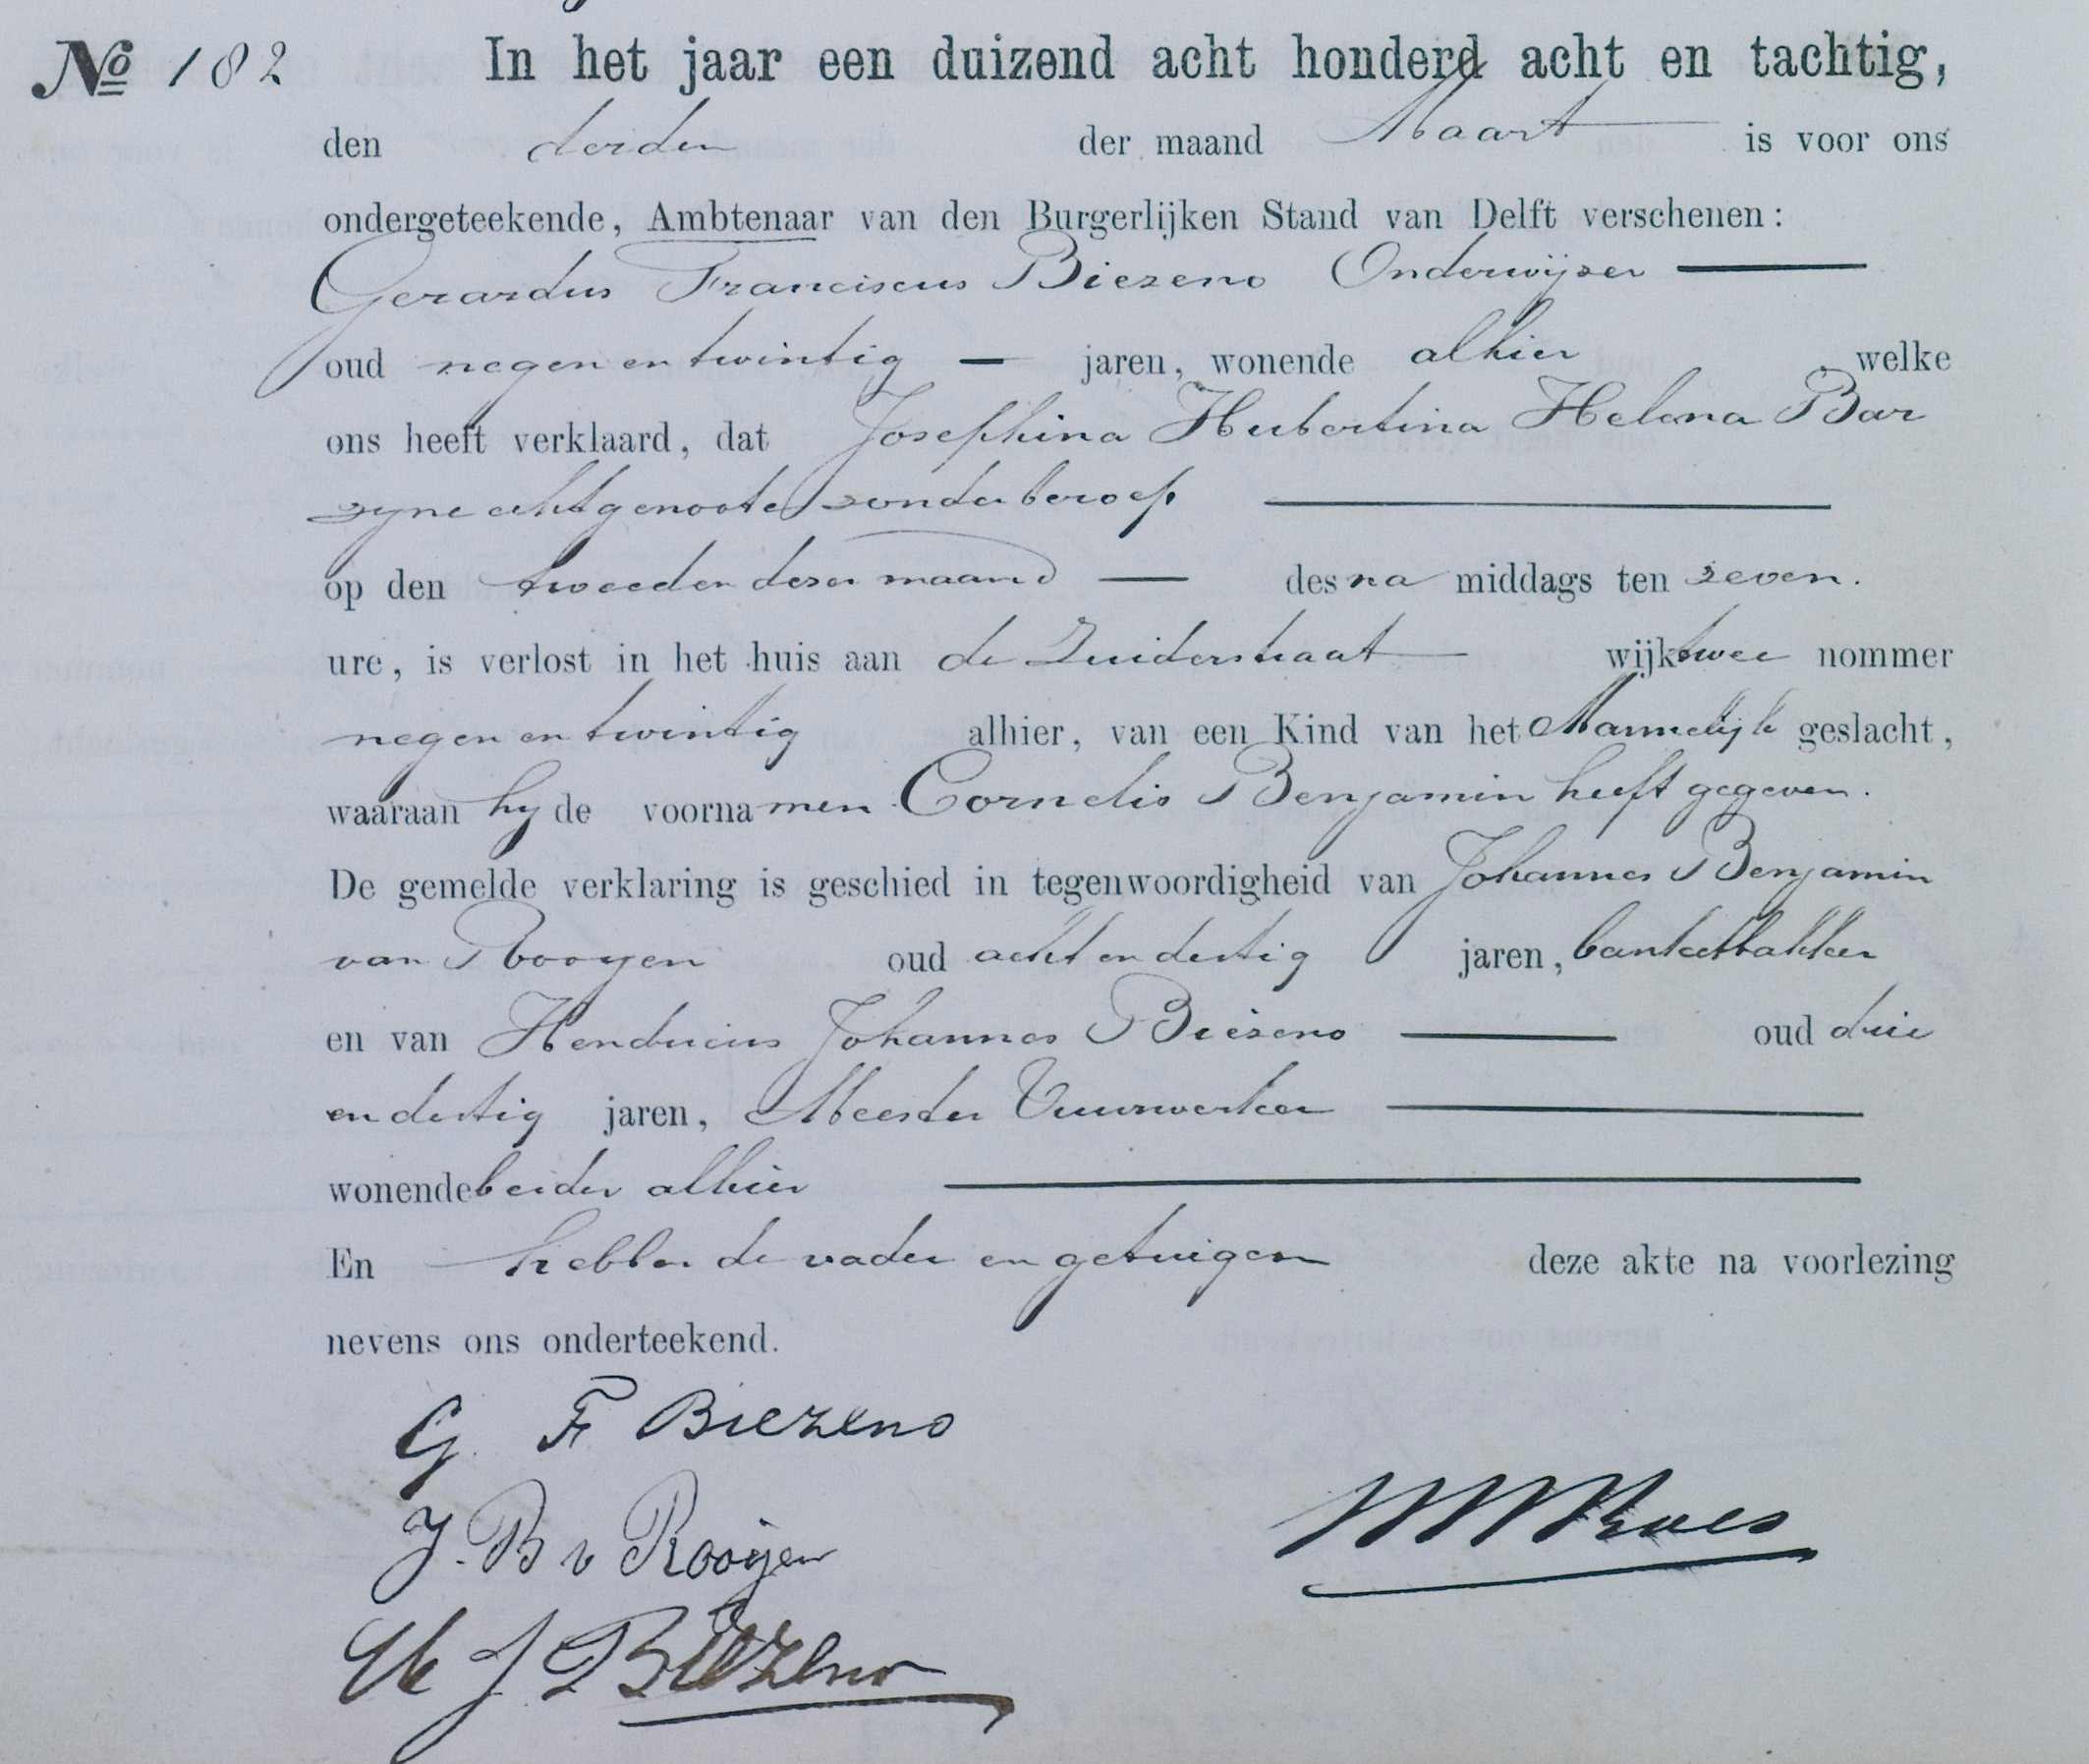 No 182 In het jaar een duizend acht honderd acht en tachtig,
den derden der maand Maart is voor ons
ondergeteekende, Ambtenaar van den Burgerlijken Stand van Delft verschenen:
Gerardus Franciscus Biezeno Onderwijzer
oud negen en twintig jaren, wonende alhier welke
ons heeft verklaard, dat Josephina Hubertina Helena Bar
zyne echtgenoote, zonder beroep
op den tweeden dezer maand des na middags ten zeven.
ure, is verlost in het huis aan de Zuiderstraat wijk twee nommer
negen en twintig alhier, van een Kind van het Mannelijk geslacht,
waaraan hy de voornamen Cornelis Benjamin heeft gegeven.
De gemelde verklaring is geschied in tegenwoordigheid van Johannes Benjamin
van Rooyen oud acht en dertig jaren, banketbakker
en van Hendricus Johannes Biezeno oud drie
en dertig jaren, Meester Vuurwerker
wonende beiden alhier
En hebben de vader en getuigen deze akte na voorlezing
nevens ons onderteekend.
G. F Biezeno
J. B v Rooijen
H J Biezeno